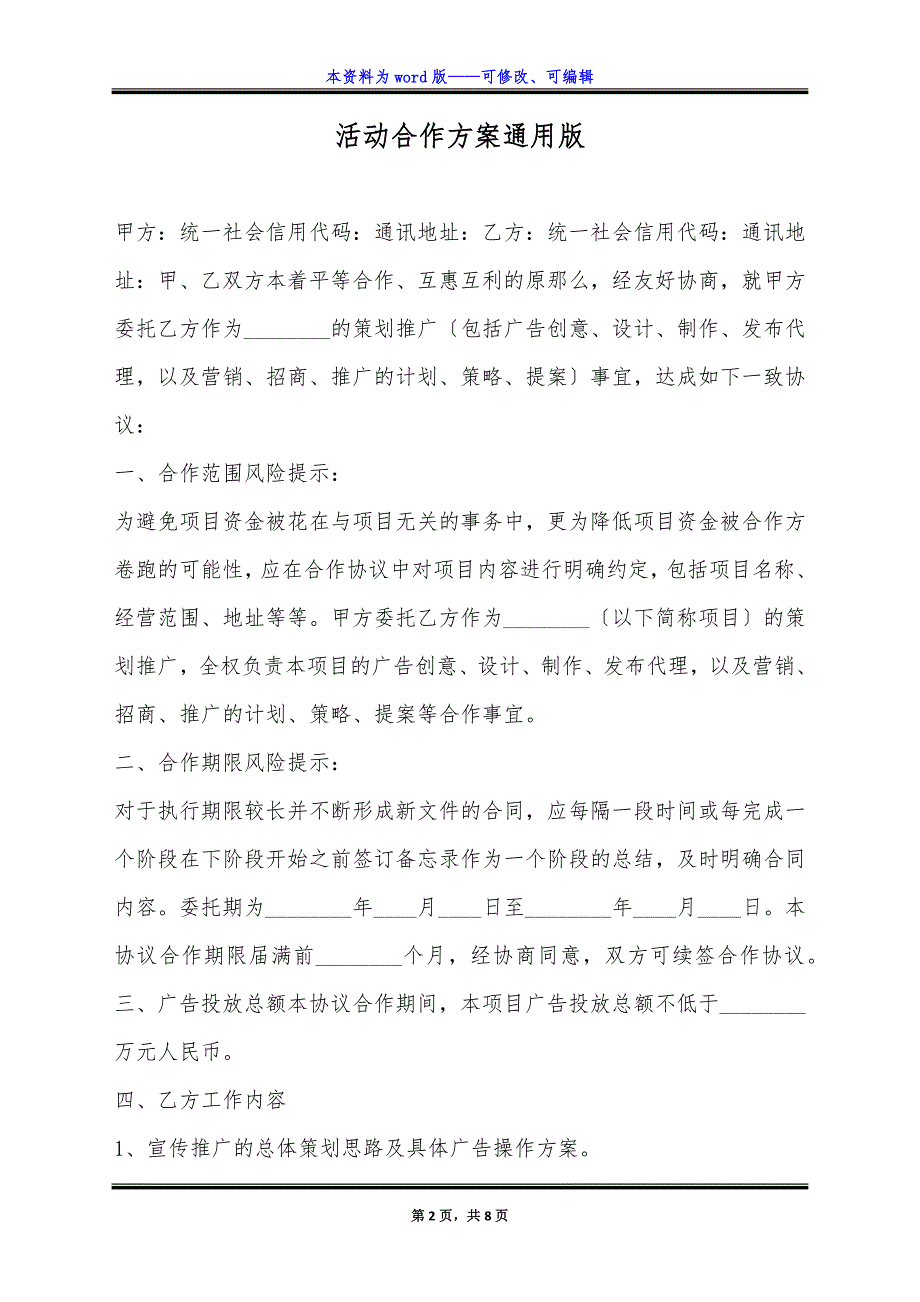 本资料为 word 版——可修改、可编辑
活动合作方案通用版
甲方：统一社会信用代码：通讯地址：乙方：统一社会信用代码：通讯地
址：甲、乙双方本着平等合作、互惠互利的原那么，经友好协商，就甲方
委托乙方作为________的策划推广〔包括广告创意、设计、制作、发布代
理，以及营销、招商、推广的计划、策略、提案〕事宜，达成如下一致协
议：
一、合作范围风险提示：
为避免项目资金被花在与项目无关的事务中，更为降低项目资金被合作方
卷跑的可能性，应在合作协议中对项目内容进行明确约定，包括项目名称、
经营范围、地址等等。甲方委托乙方作为________〔以下简称项目〕的策
划推广，全权负责本项目的广告创意、设计、制作、发布代理，以及营销、
招商、推广的计划、策略、提案等合作事宜。
二、合作期限风险提示：
对于执行期限较长并不断形成新文件的合同，应每隔一段时间或每完成一
个阶段在下阶段开始之前签订备忘录作为一个阶段的总结，及时明确合同
内容。委托期为________年____月____日至________年____月____日。本
协议合作期限届满前________个月，经协商同意，双方可续签合作协议。
三、广告投放总额本协议合作期间，本项目广告投放总额不低于________
万元人民币。
四、乙方工作内容
1、宣传推广的总体策划思路及具体广告操作方案。
第 2 页，共 8 页